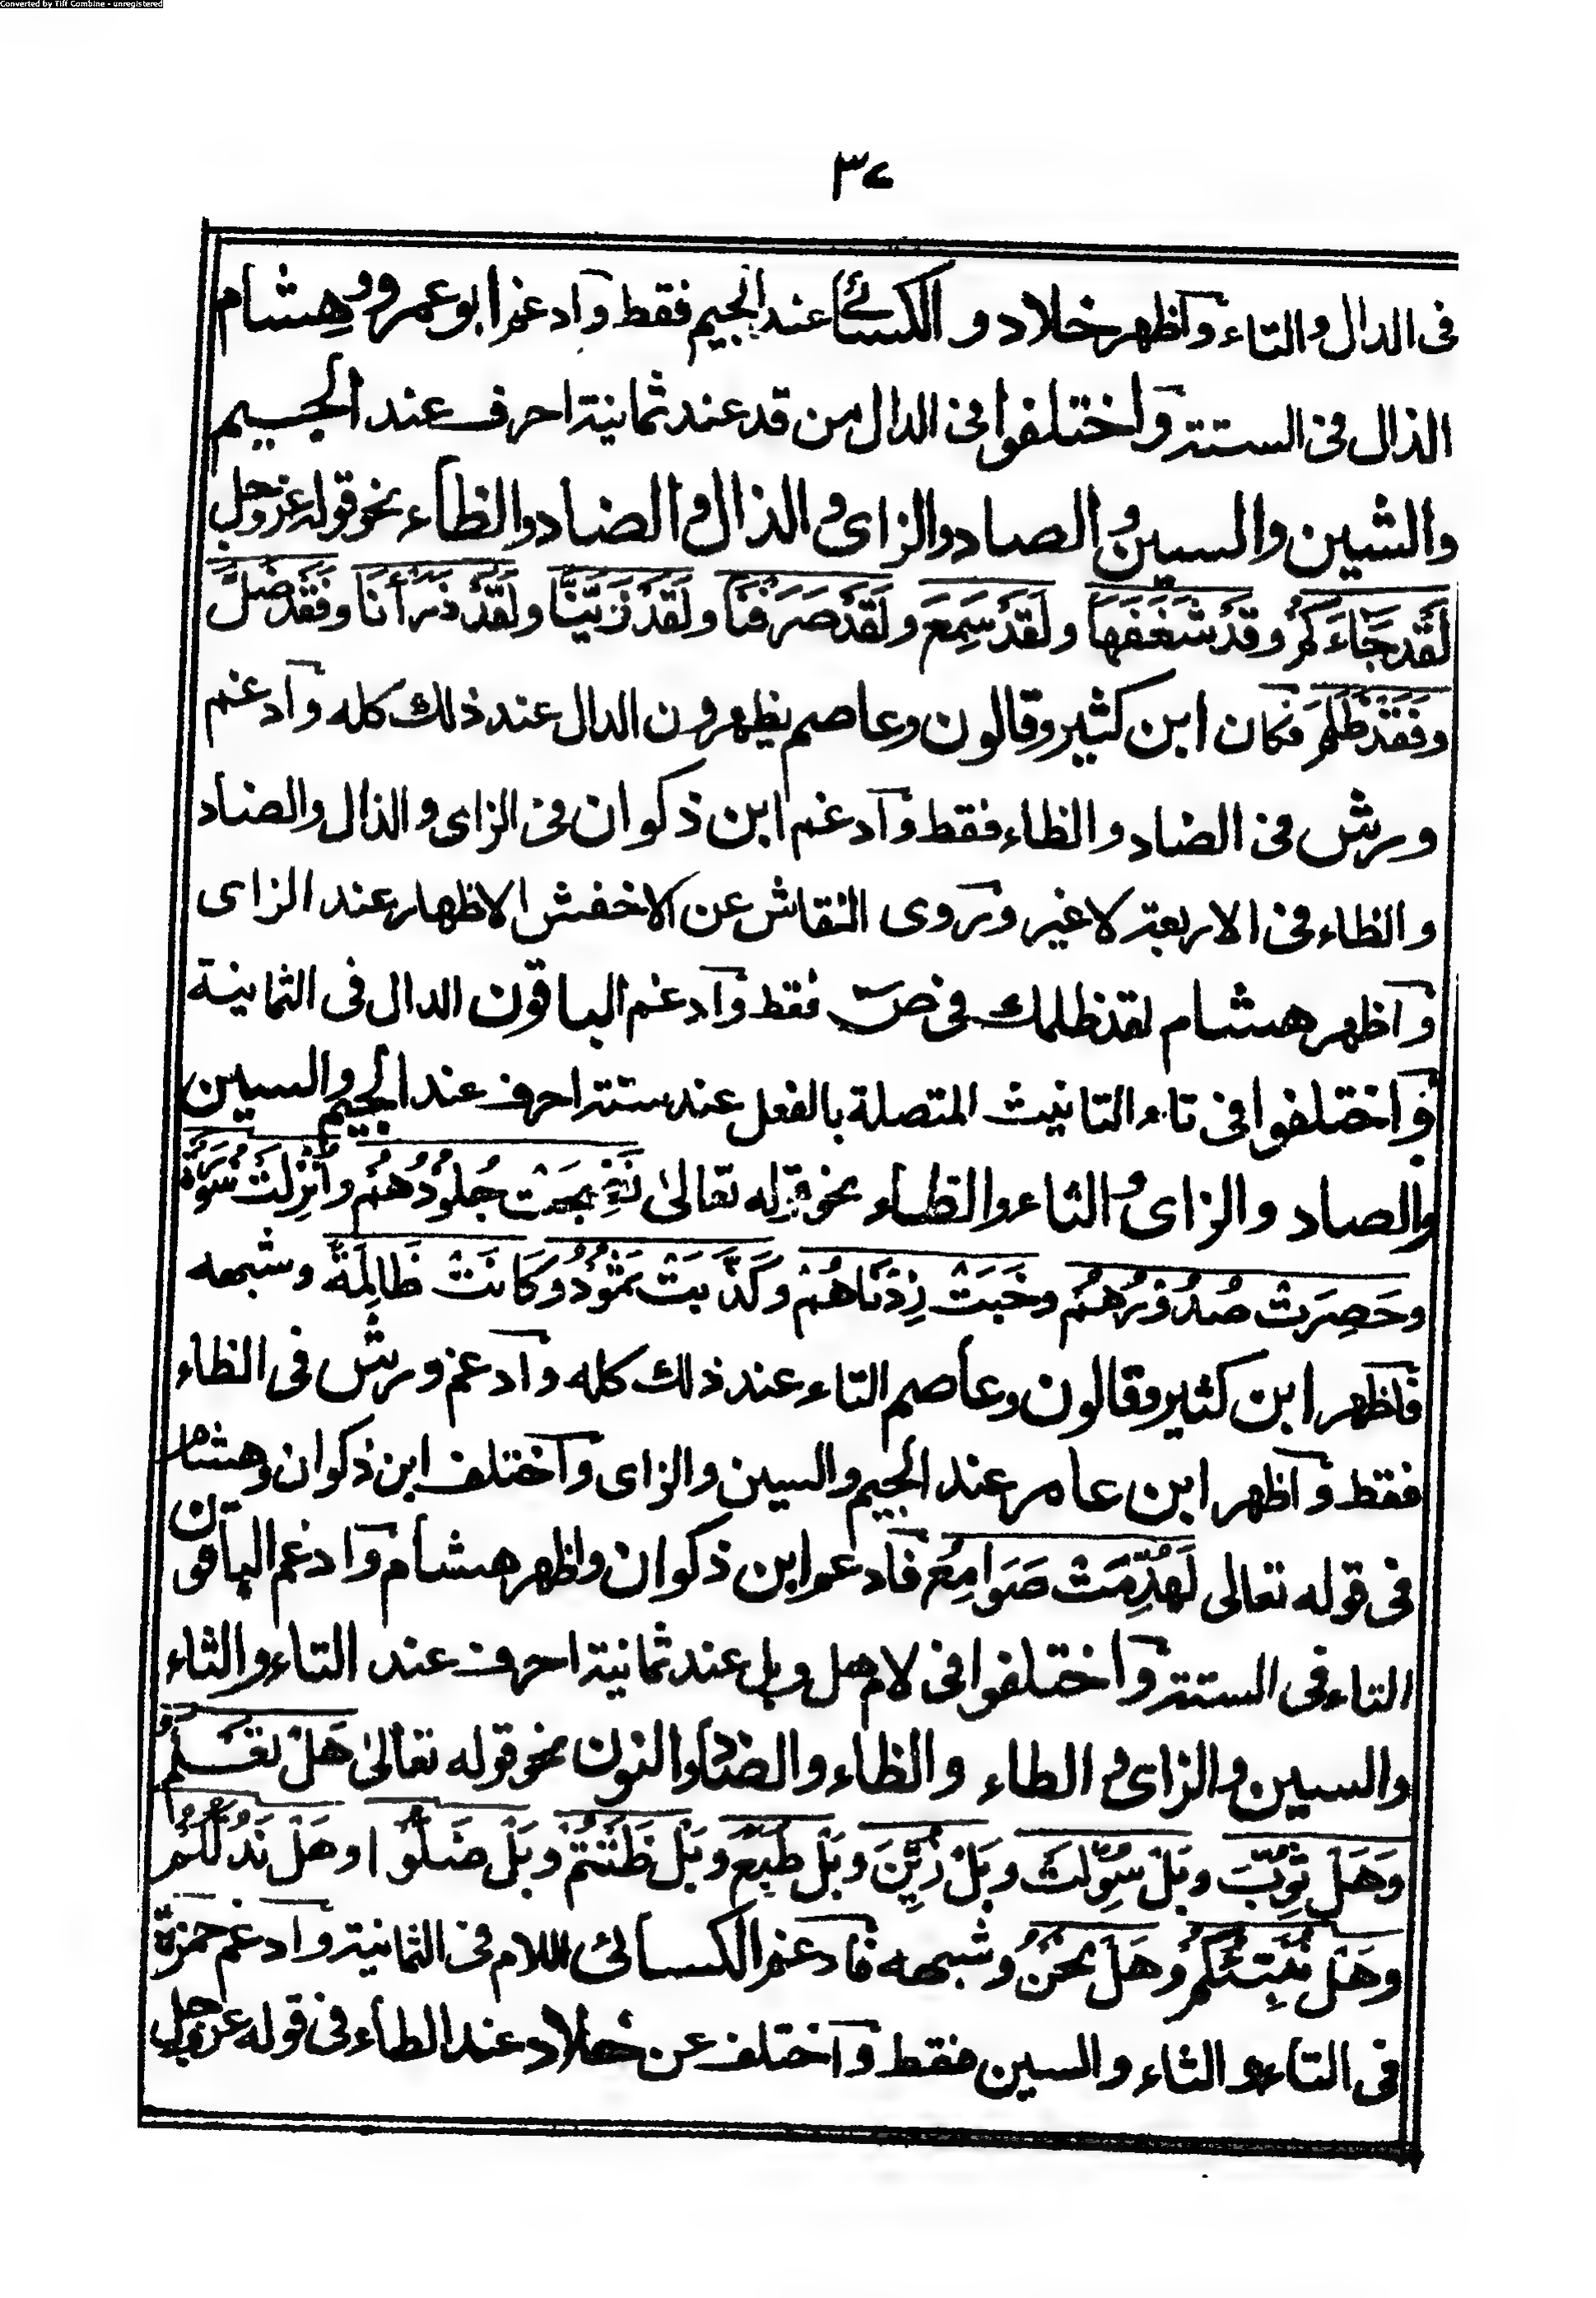 Converted by Tiff Combine - unregistered
٣٤
فى الدال والتاء واظهر خلاد و الكسائي عند الجيم فقط وادغم ابو عمرو وهشام
الذال فى الستة واختلفوا فى الدال من قد عند ثمانية احرف عند الجسيم
والشين والسين والصاد والزاى والذال والضاد والظاء نحو قوله عزوجل
لَقَدْ جَاءَكُمْ وقَدْ شَغَفَهَا ولَقَدْ سَمِعَ ولَقَدْ صَرَفْنَا ولَقَدْ زَيَّنَّا ولَقَدْ ذَرَأْنَا وفَقَدْ ضَلَّ
وفَقَدْ ظَلَمَ فكان ابن كثير وقالون وعاصم يظهرون الدال عند ذلك كله وادغم
ورش فى الضاد والظاء فقط وادغم ابن ذكوان فى الزاى والذال والضاد
والظاء فى الاربعة لا غير وروى النقاش عن الاخفش الاظهار عند الزاى
واظهر هشام لقد ظلمك فى ص فقط وادغم الباقون الدال فى الثمانية
واختلفوا فى تاء التانيث المتصلة بالفعل عند ستة احرف عند الجيم والسين
والصاد والزاى والثاء والظاء نحو قوله تعالىٰ نَضِجَتْ جُلُوْدُهُمْ وأُنْزِلَتْ سُوْرَةٌ
وحَصِرَتْ صُدُوْرُهُمْ وخَبَتْ زِدْنَاهُمْ وكَذَّبَتْ ثَمُوْدُ وكَانَتْ ظَالِمَةً وشبهه
فاظهر ابن كثير وقالون وعاصم التاء عند ذلك كله وادغم ورش فى الظاء
فقط واظهر ابن عامر عند الجيم والسين والزاى واختلف ابن ذكوان وهشام
فى قوله تعالى لَهُدِّمَتْ صَوَامِعُ فادغم ابن ذكوان واظهر هشام وادغم الباقون
التاء فى الستة واختلفوا فى لام هل وبل عند ثمانية احرف عند التاء والثاء
والسين والزاى والطاء والظاء والضاد والنون نحو قوله تعالىٰ هَلْ تَعْلَمُ
وَهَلْ ثُوِّبَ وبَلْ سَوَّلَتْ وبَلْ زُيِّنَ وبَلْ طَبَعَ وبَلْ ظَنَنْتُمْ وبَلْ ضَلُّوْا وهَلْ نَدُلُّكُمْ
وهَلْ نُنَبِّئُكُمْ وهَلْ نَحْنُ وشبهه فادغم الكسائى اللام فى الثمانية وادغم حمزة
فى التاء والثاء والسين فقط واختلف عن خلاد عند الطاء فى قوله عزوجل